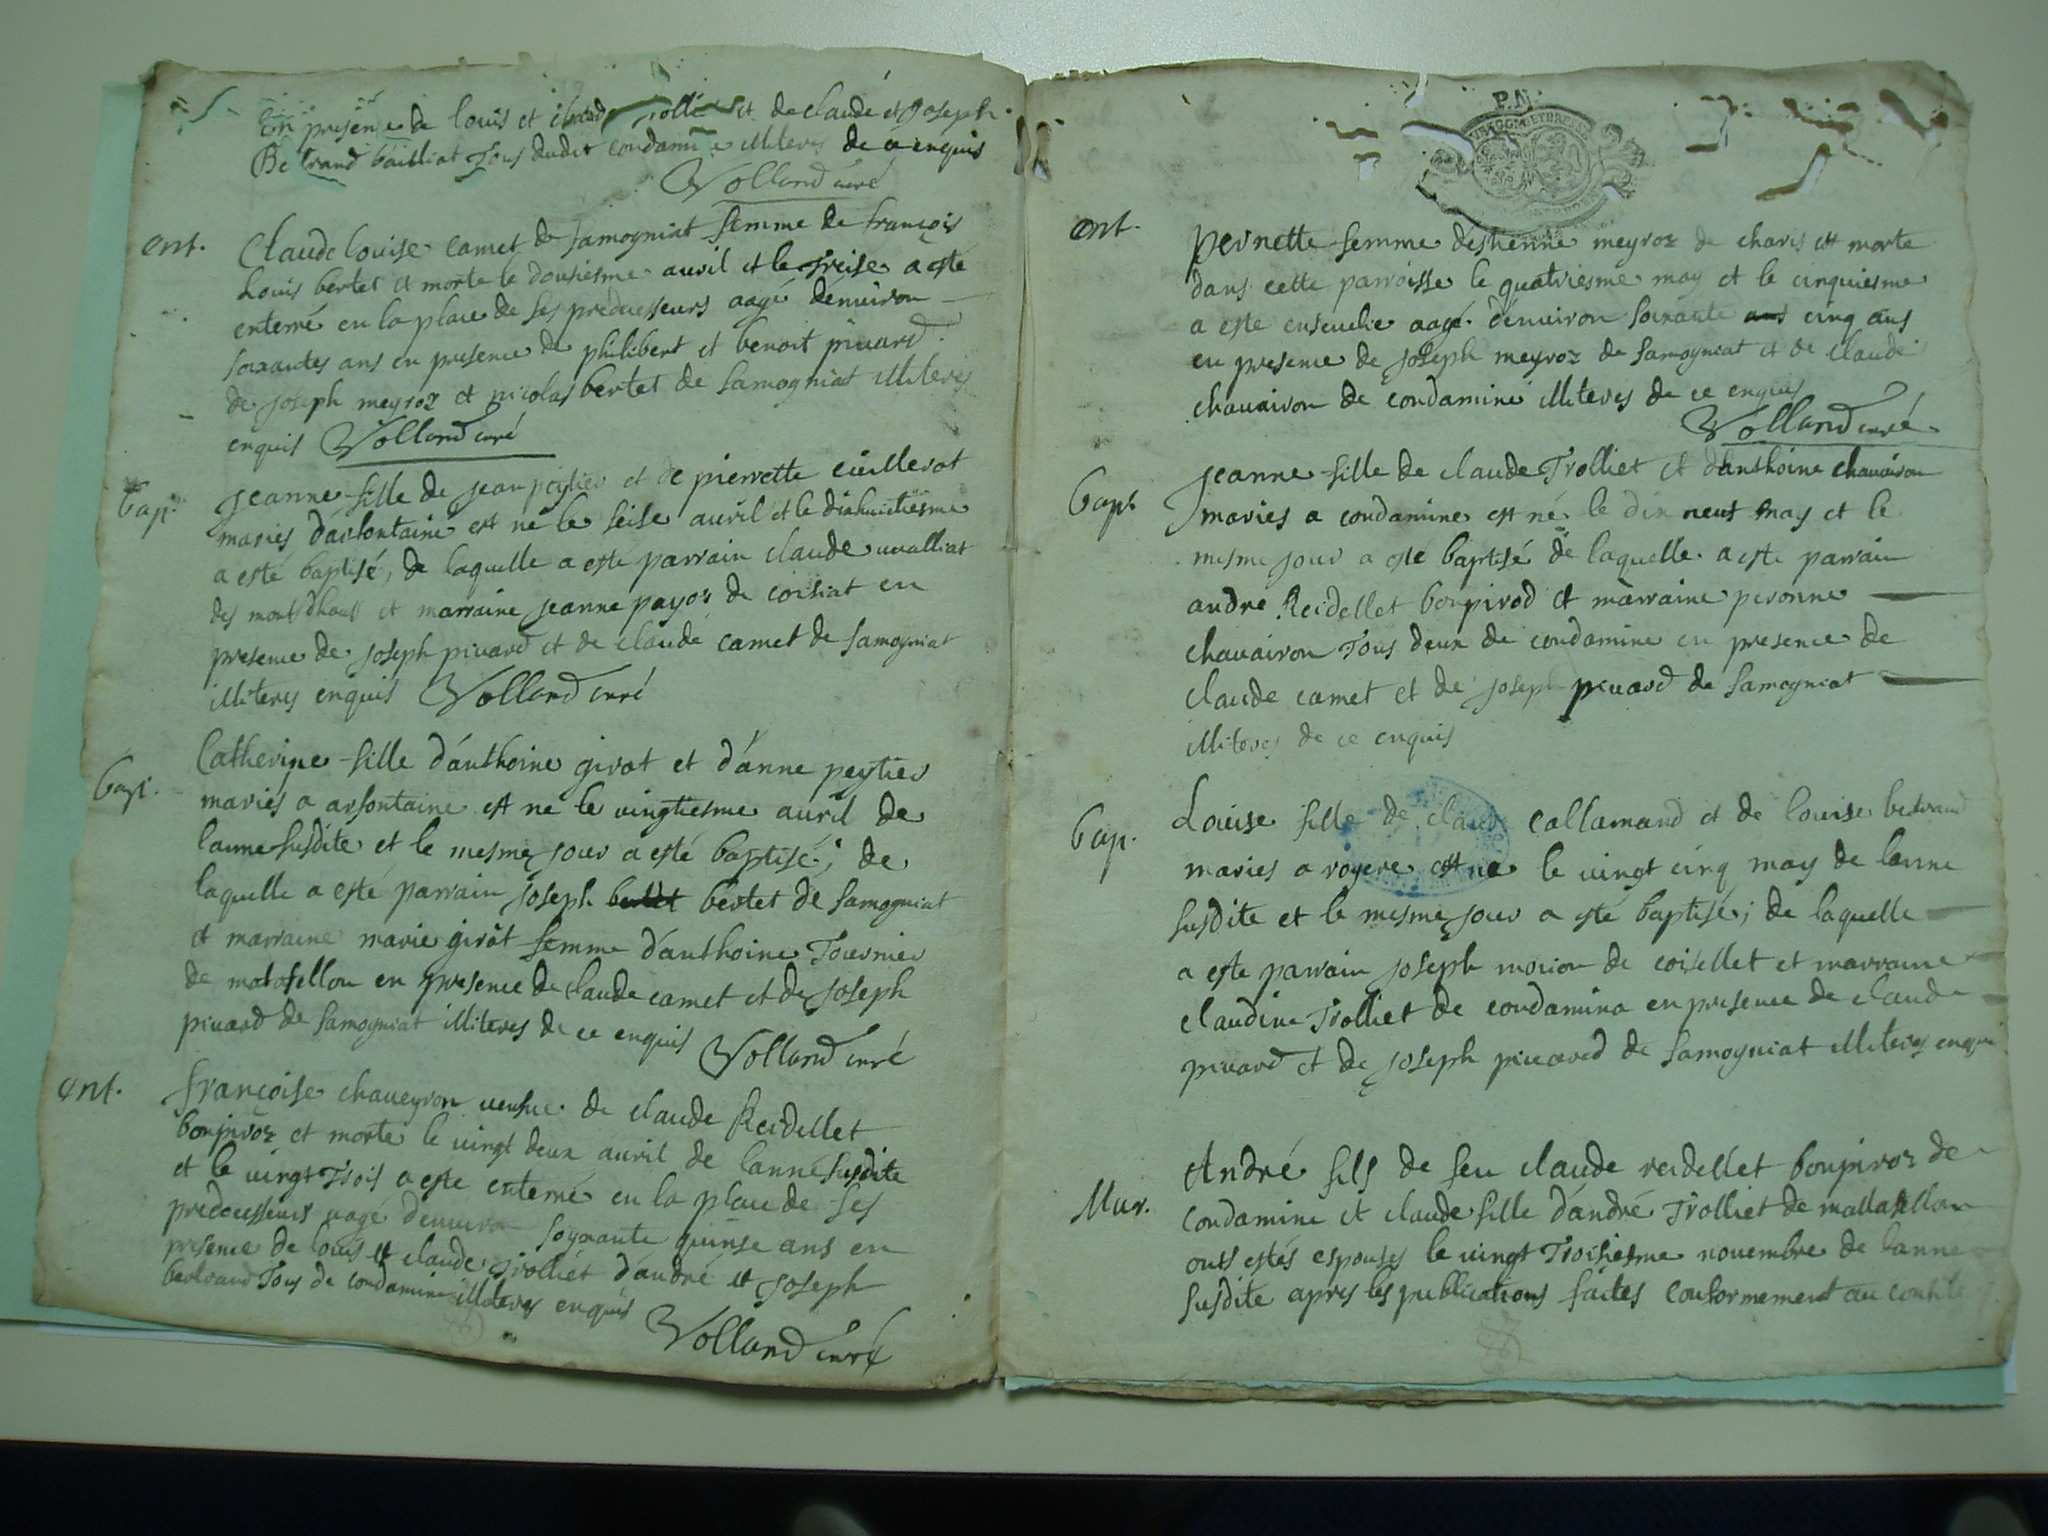 En presence de louis et claude et de claude et Joseph
Bertrand bailliat Tous dudit condamine illiteres de ce enquis
Volland curé
ent.
Claude louise camet de samogniat femme de françois
Louis bertet est morte le dousiesme auril et le treise a esté
enterré en la place de ses predecesseurs aagé denuiron
soixantes ans en presence de philibert et benoit piuard
de Joseph meyroz et nicolas bertet de samogniat illiteres
enquis Volland curé
bap.
Jeanne fille de Jean peytier et de pierrette cuillerat
mariés d'arfontaine est né le seise auril et le dixhuictiesme
a esté baptisé, de laquelle a esté parrain claude
des et marraine Jeanne payoz de coisiat en
presence de Joseph piuard et de claude camet de samogniat
illiteres enquis Volland curé
bapt.
Catherine fille d'anthoine girat et d'anne peytier
mariés a arfontaine est ne le uingtiesme auril de
lanne susdite et le mesme jour a esté baptisé; de
laquelle a esté parrain Joseph bertet de samogniat
et marraine marie girat femme d'anthoine Tournier
de matafellon en presence de claude camet et de Joseph
piuard de samogniat illiteres de ce enquis Volland curé
ent.
françoise chaueyron ueufue de claude Reidellet
bonpiroz et morte le uingt deux auril de lanné susdite
et le uingt Trois a este enterré en la place de ses
predecesseurs aagé denuiron soyxante quinse ans en
presence de louis et claude Trolliet d'andré et Joseph
bertrand Tous de condamine illiteres enquis
Volland curé
P.N.
ent.
pernette femme destienne meyroz de charis est morte
dans cette parroisse le quatriesme may et le cinquiesme
a este enseuelie aagé d'enuiron soixante ans cinq ans
en presence de Joseph meyroz de samogniat et de claude
chauairon de condamine illiteres de ce enquis
Volland curé
bapt.
Jeanne fille de claude Trolliet et d'anthoine chauairon
mariés a condamine est né le dix neuf may et le
mesme jour a esté baptisé de laquelle a esté parrain
andre Reidellet bonpirod et marraine peronne
chauairon Tous deux de condamine en presence de
claude camet et de Joseph piuard de samogniat
illiteres de ce enquis
bap.
Louise fille de claude callamand et de louise bertrand
mariés a royere est ne le uingt cinq may de lanne
susdite et le mesme jour a esté baptisé; de laquelle
a este parrain Joseph morion de coisellet et marraine
claudine Trolliet de condamina en presence de claude
piuard et de Joseph piuard de samogniat illiteres enquis
Mar.
André fils de feu claude reidellet bonpiroz de
condamine et claude fille d'andré Trolliet de mattafellon
onts estés espouses le uingt Troisiesme nouembre de lanne
susdite apres les publications faites conformement au concile